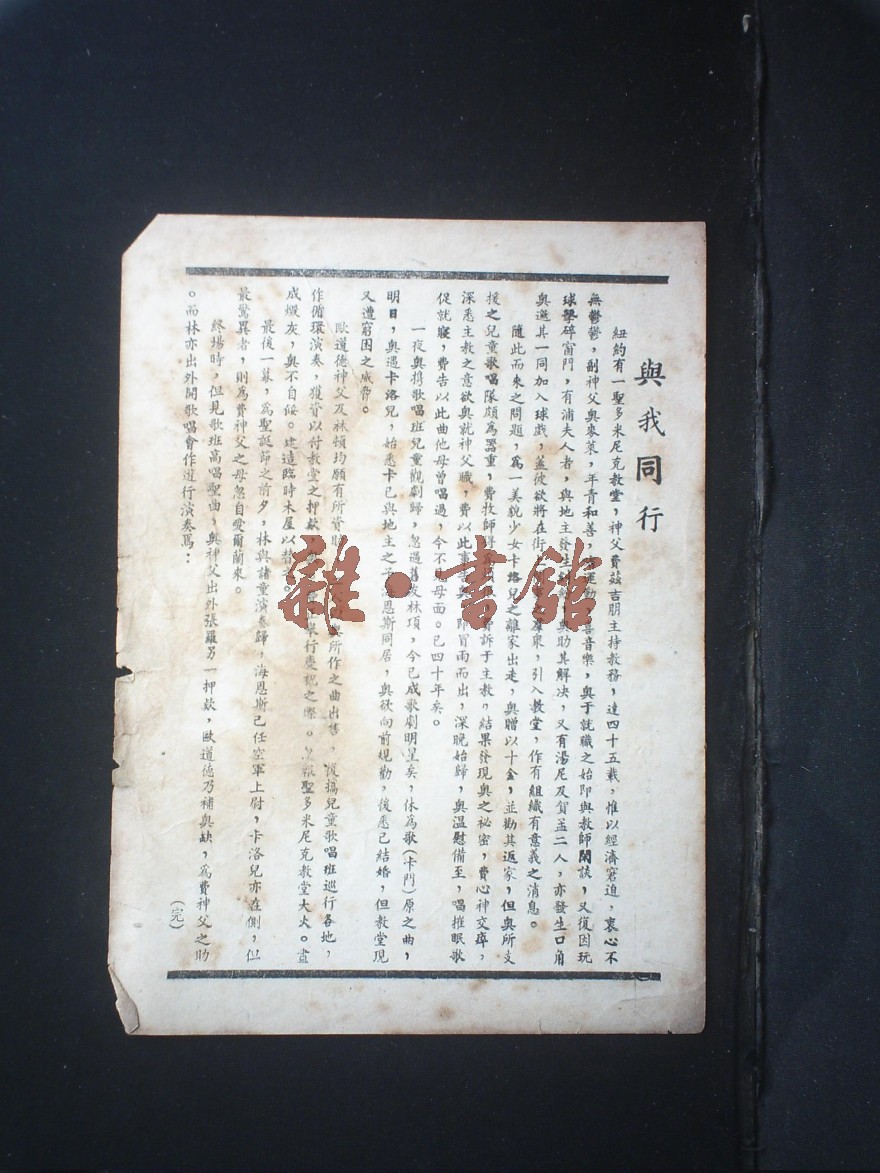 與我同行
紐約有一聖多米尼克教堂，神父費茲吉朋主持教務，達四十五載，惟以經濟窘迫，衷心不
無鬱鬱，副神父奧麥萊，年青和善，運動喜音樂，奧于就職之始即與教師閒談，又復因玩
球擊碎窗門，有浦夫人者，與地主發生，奧助其解決，又有湯尼及賀盖二人，亦發生口角
奧邀其一同加入球戲，蓋彼欲將在街羣衆，引入教堂，作有組織有意義之消息。
隨此而來之問題，爲一美貌少女卡洛兒之離家出走，奧贈以十金，並勸其返家，但奧所支
援之兒童歌唱隊頗為器重，費牧師訴于主教，結果發現奧之祕密，費心神交瘁，
深悉主教之意欲奧就神父職，費以此事即冒雨而出，深晚始歸，奧溫慰備至，唱搖眠歌
促就寢，費告以此曲他母曾唱過，今不母面。已四十年矣。
一夜奧携歌唱班兒童觀劇歸，忽遇舊友林項，今已成歌劇明星矣，休為歌（卡門）原之曲，
明日，奧遇卡洛兒，始悉卡已與地主之子海恩斯同居，奧欲向前規勸，後悉已結婚，但教堂現
又遭窮困之威脅。
歐道德神父及林頓均願有所資助奧所作之曲出售，復搞兒童歌唱班巡行各地，
作循環演奏，獲資以付教堂之押款，舉行慶祝之際。聖多米尼克教堂大火。盡
成燬灰，奧不自餒。建造臨時木屋以替之。
最後一幕，為聖誕節之前夕，林與諸童演奏歸，海恩斯已任空軍上尉，卡洛兒亦在側，但
最驚異者，則為費神父之母忽自愛爾蘭來。
終場時，但見歌班高唱聖曲，奧神父出外張羅另一押欵，歐道德乃補奧缺，爲費神父之助
。而林亦出外開歌唱會作遊行演奏焉：
（完）
雜·書館